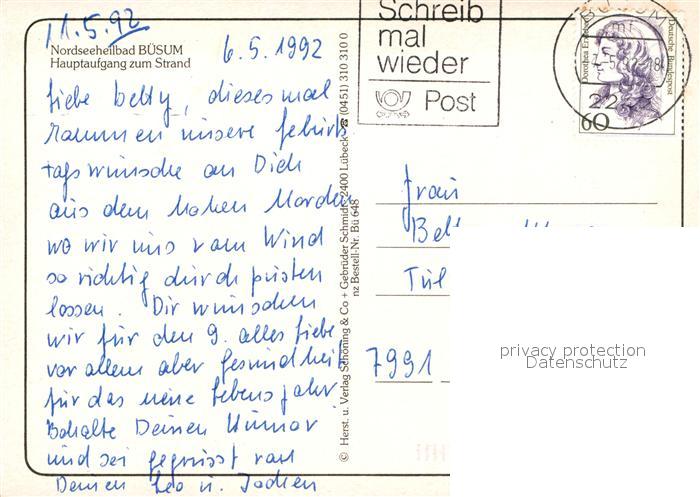 11.5.92
Nordseeheilbad BÜSUM
Hauptaufgang zum Strand
6.5.1992
Liebe Betty, dieses mal
kommen unsere Geburts
tagswünsche an Dich
aus dem hohen Norden
wo wir uns vom Wind
so richtig durch pusten
lassen. Dir wünschen
wir für den 9. alles Liebe
vor allem aber Gesundheit
für das neue Lebensjahr.
Behalte Deinen Humor
und sei gegrüsst von
Deinen Leo u. Jochen
© Herst. u. Verlag Schöning & Co + Gebrüder Schmidt, 2400 Lübeck ☎ (0451) 310 310 0
nz Bestell-Nr. Bü 648
Schreib
mal
wieder
Post
BÜSUM
Deutsche Bundespost
60
Frau
7991
privacy protection
Datenschutz